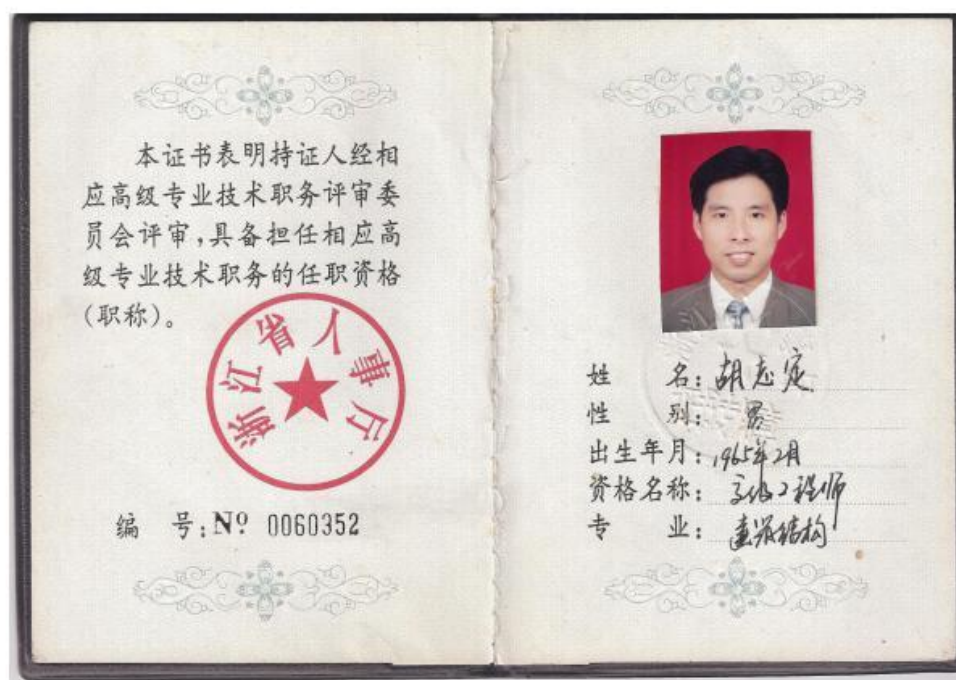 本证书表明持证人经相
应高级专业技术职务评审委
员会评审,具备担任相应高
级专业技术职务的任职资格
(职称)。
浙江省人事厅
编 号:Nº 0060352
姓 名:胡志定
性 别:男
出生年月:1965年2月
资格名称:高级工程师
专 业:建筑结构